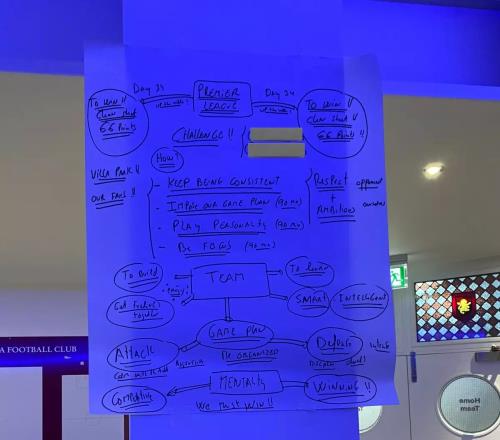 Day 33
PREMIER LEAGUE
Day 34
TO WIN !!
Clean sheet
66 Points
TO WIN !!
Clean sheet
66 Points !!
CHALLENGE !!
How?
VILLA PARK !!
OUR FANS !!
- KEEP BEING CONSISTENT
- IMPOSE OUR GAME PLAN (90 mn)
- PLAY PERSONALITY (90 mn)
- BE FOCUS (90 mn)
RESPECT opponent
+
AMBITIOUS ourselves
To Build
TEAM
enjoy!
Get Feeling's together
SMART
INTELLIGENT
GAME PLAN
BE ORGANIZED
ATTACK
DEFENSE
MENTALITY
COMPETITIVE
WINNING !!
WE MUST WIN !!
A FOOTBALL CLUB
Home
Team